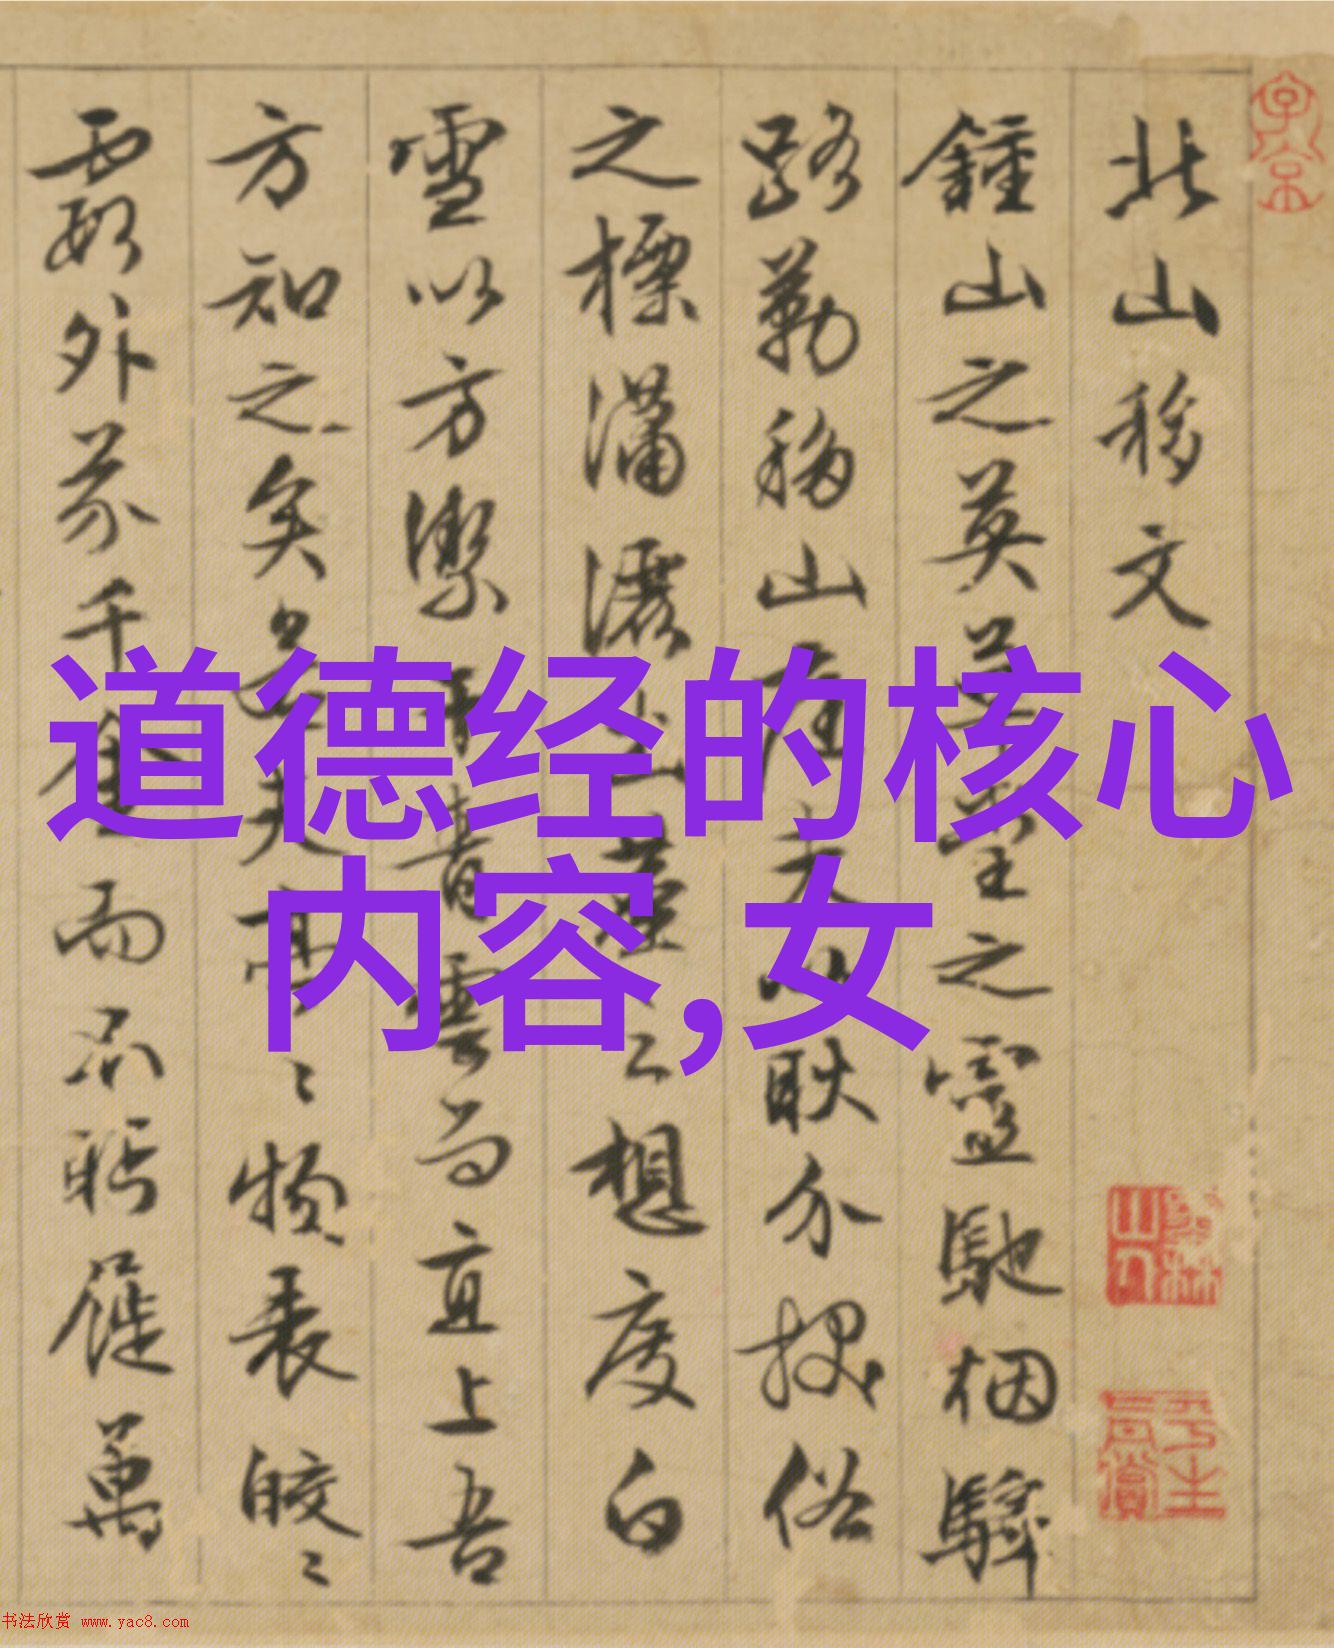 道德经的核心
内容,女
北山移文
鍾山之英草堂之靈馳烟驛
路勒移山庭夫以耿介拔俗
之標瀟灑出塵之想度白
雪以方潔干青雲而直上吾
方知之矣若其亭〻物表皎〻
霞外芥千金而不眄屣萬
子京
墨林山人
平生真賞
书法欣赏 www.yac8.com